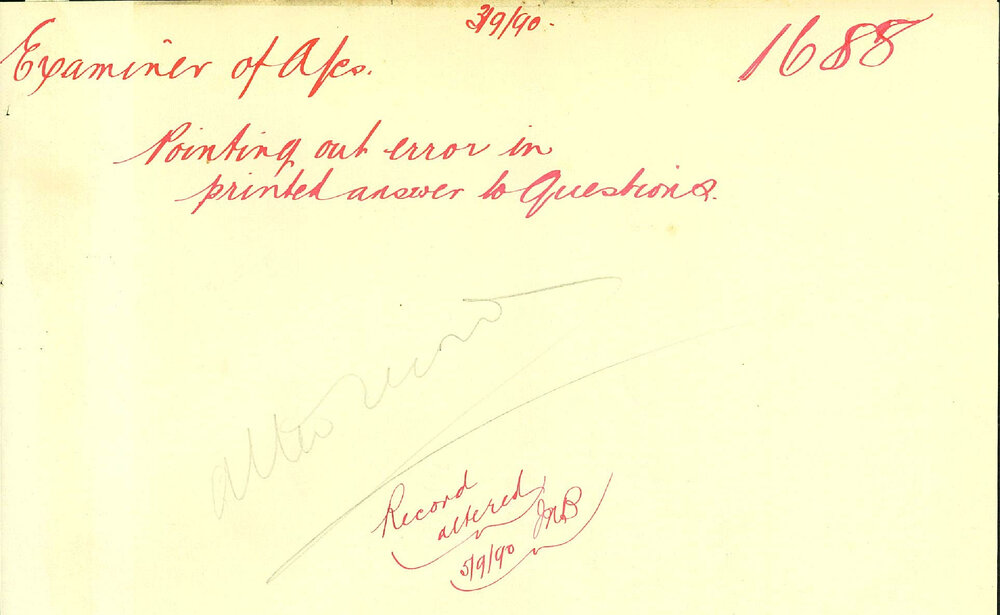 3/9/90.
1688
Examiner of A/cs.
Pointing out error in
printed answer to Questions.
Record
altered
JMB
5/9/90